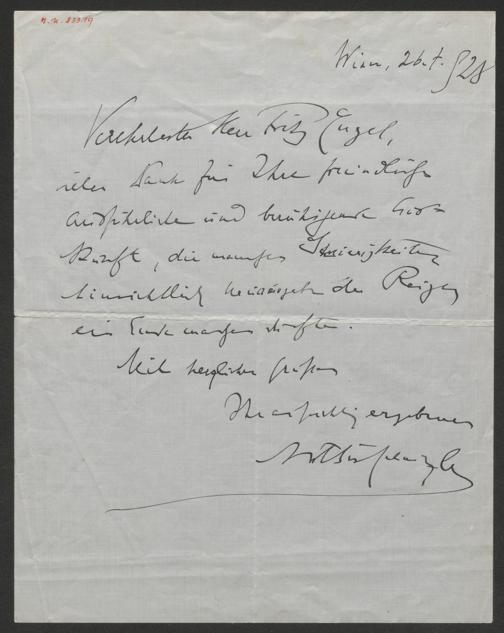 H.N. 83319
Wien, 26. 928
Verehrtester Herr Fritz Engel,
vielen Dank für Ihre freundliche
ausführliche und beruhigende Aus-
kunft, die manchen Schwierigkeiten
hinsichtlich der Reigen
ein Ende machen dürfte.
Mit herzlichen Grüßen
Ihr aufrichtig ergebener
Arthur Schnitzler